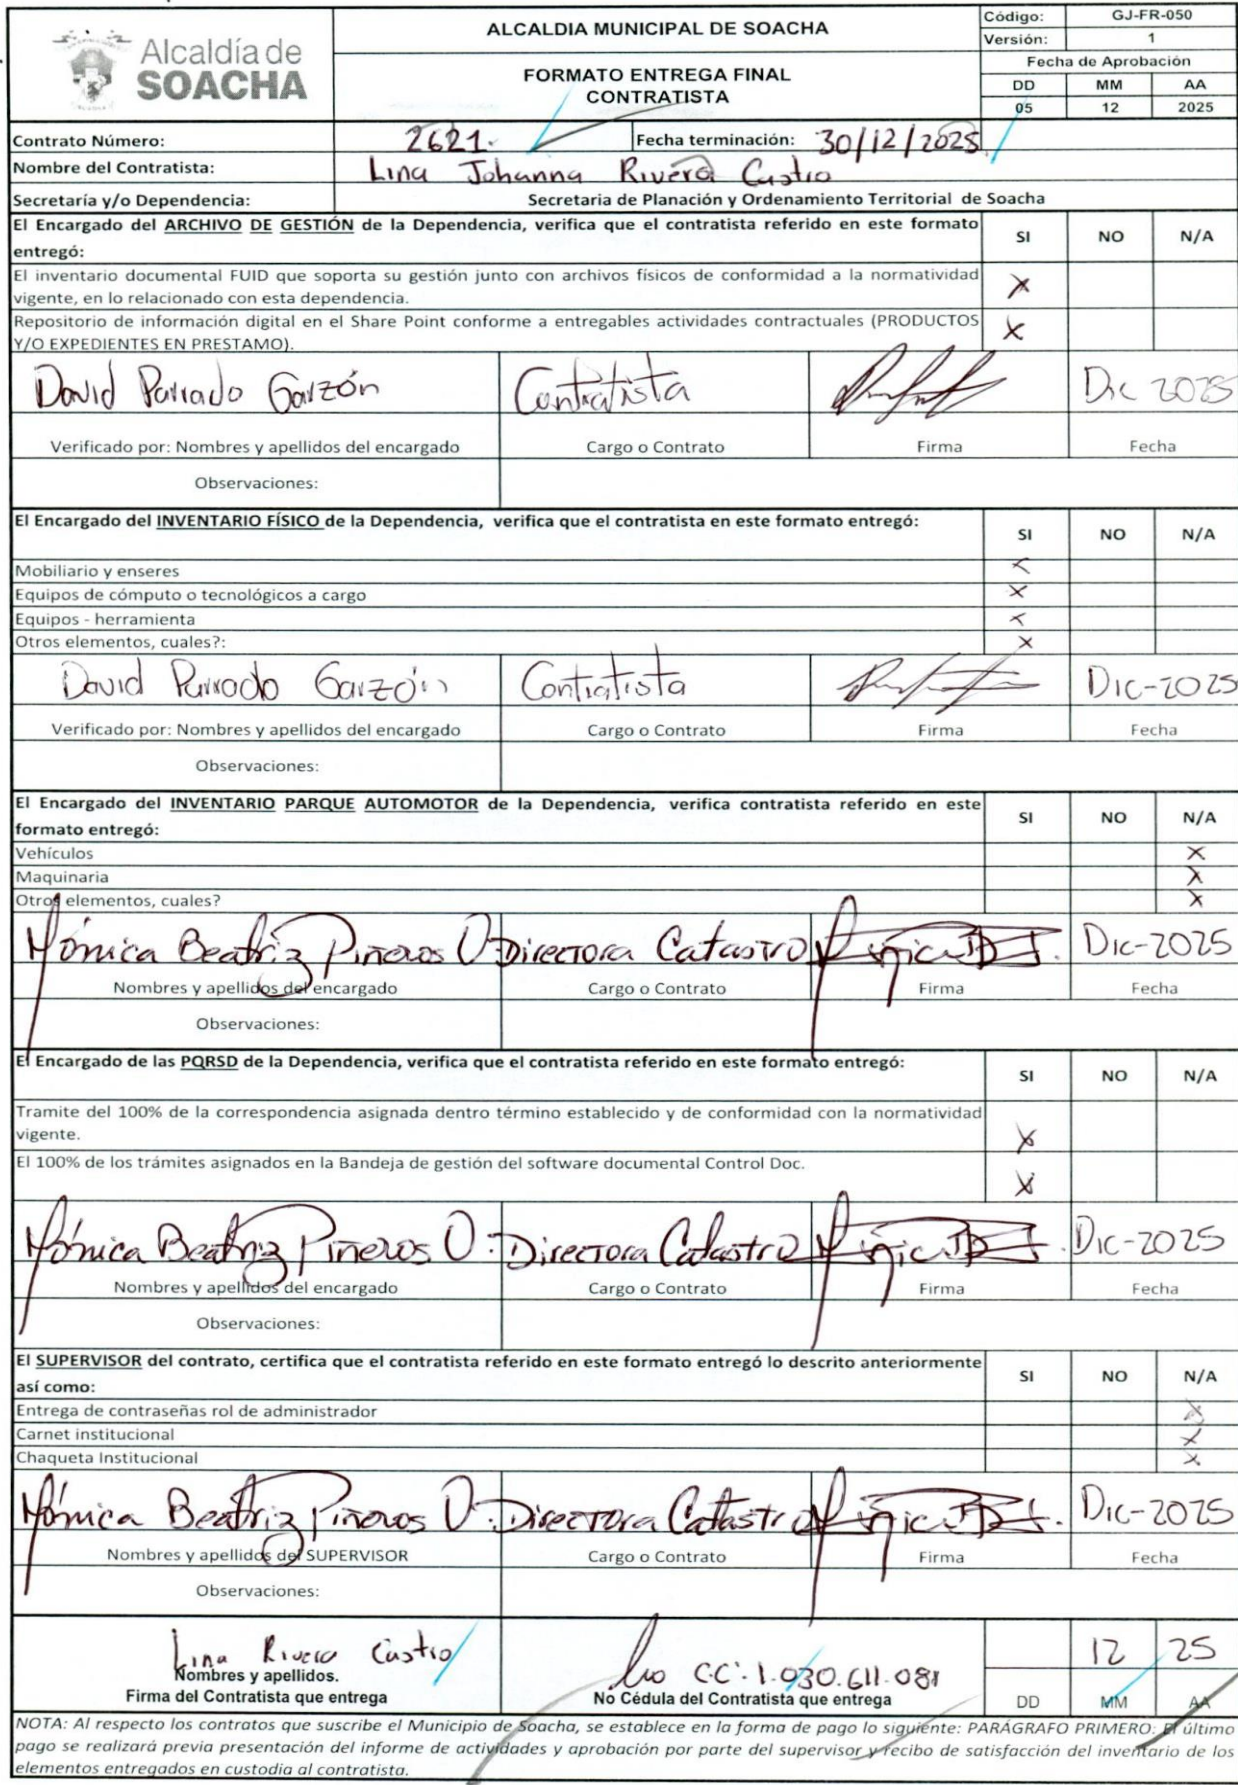 Alcaldía de
SOACHA
ALCALDIA MUNICIPAL DE SOACHA
FORMATO ENTREGA FINAL
CONTRATISTA
Código: GJ-FR-050
Versión: 1
Fecha de Aprobación
DD MM AA
05 12 2025
Contrato Número: 2621. Fecha terminación: 30/12/2025
Nombre del Contratista: Lina Johanna Rivera Castro
Secretaría y/o Dependencia: Secretaria de Planación y Ordenamiento Territorial de Soacha
El Encargado del ARCHIVO DE GESTIÓN de la Dependencia, verifica que el contratista referido en este formato
entregó:
SI NO N/A
El inventario documental FUID que soporta su gestión junto con archivos físicos de conformidad a la normatividad
vigente, en lo relacionado con esta dependencia. X
Repositorio de información digital en el Share Point conforme a entregables actividades contractuales (PRODUCTOS
Y/O EXPEDIENTES EN PRESTAMO). X
David Parrado Garzón Contratista Dic 2025
Verificado por: Nombres y apellidos del encargado Cargo o Contrato Firma Fecha
Observaciones:
El Encargado del INVENTARIO FÍSICO de la Dependencia, verifica que el contratista en este formato entregó:
SI NO N/A
Mobiliario y enseres X
Equipos de cómputo o tecnológicos a cargo X
Equipos - herramienta X
Otros elementos, cuales?: X
David Parrado Garzón Contratista Dic-2025
Verificado por: Nombres y apellidos del encargado Cargo o Contrato Firma Fecha
Observaciones:
El Encargado del INVENTARIO PARQUE AUTOMOTOR de la Dependencia, verifica contratista referido en este
formato entregó:
SI NO N/A
Vehículos X
Maquinaria X
Otros elementos, cuales? X
Mónica Beatriz Piñeros O. Directora Catastro Dic-2025
Nombres y apellidos del encargado Cargo o Contrato Firma Fecha
Observaciones:
El Encargado de las PQRSD de la Dependencia, verifica que el contratista referido en este formato entregó:
SI NO N/A
Tramite del 100% de la correspondencia asignada dentro término establecido y de conformidad con la normatividad
vigente. X
El 100% de los trámites asignados en la Bandeja de gestión del software documental Control Doc. X
Mónica Beatriz Piñeros O. Directora Catastro Dic-2025
Nombres y apellidos del encargado Cargo o Contrato Firma Fecha
Observaciones:
El SUPERVISOR del contrato, certifica que el contratista referido en este formato entregó lo descrito anteriormente
así como:
SI NO N/A
Entrega de contraseñas rol de administrador X
Carnet institucional X
Chaqueta Institucional X
Mónica Beatriz Piñeros O. Directora Catastro Dic-2025
Nombres y apellidos del SUPERVISOR Cargo o Contrato Firma Fecha
Observaciones:
Lina Rivera Castro C.C. 1.030.611.081 12 25
Nombres y apellidos.
Firma del Contratista que entrega No Cédula del Contratista que entrega DD MM AA
NOTA: Al respecto los contratos que suscribe el Municipio de Soacha, se establece en la forma de pago lo siguiente: PARÁGRAFO PRIMERO: El último
pago se realizará previa presentación del informe de actividades y aprobación por parte del supervisor y recibo de satisfacción del inventario de los
elementos entregados en custodia al contratista.